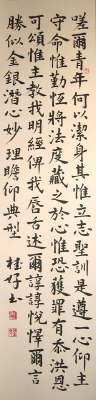 嗟爾青年何以潔身其惟立志聖訓是遵一心仰主
守命惟勤恆將法度藏之於心惟恐獲罪有忝洪恩
可頌惟主教我明經俾我唇舌述爾諄諄悅懌爾言
勝似金銀潛心妙理瞻仰典型